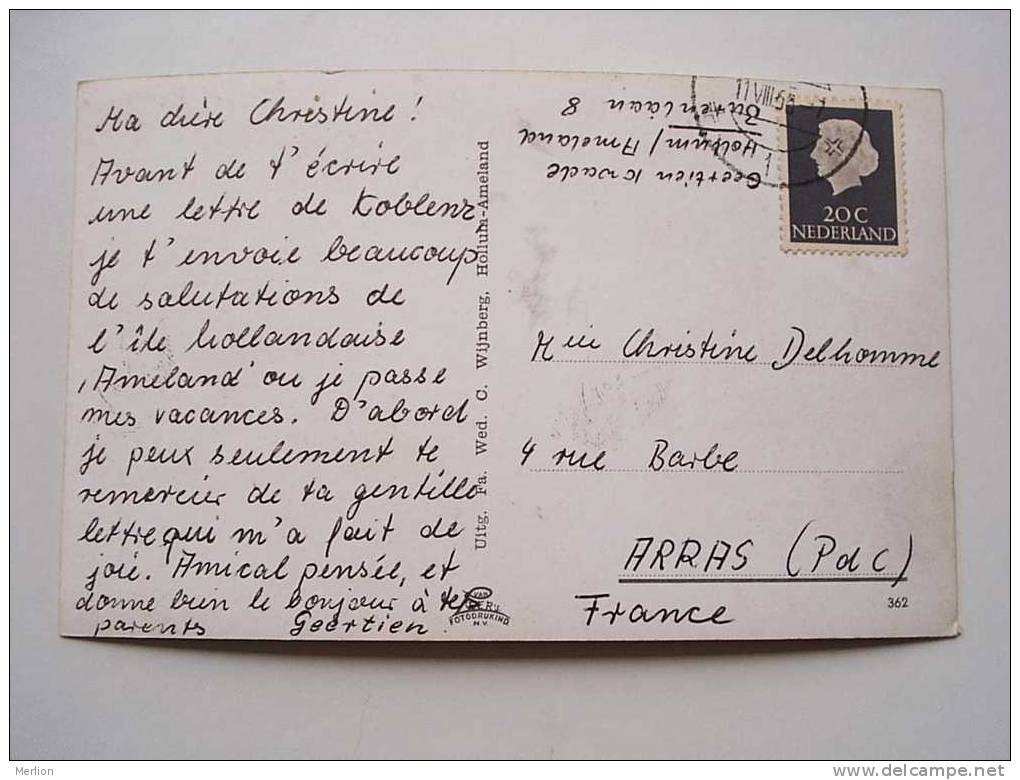 Ma chère Christine!
Avant de t'écrire
une lettre de Koblenz
je t'envoie beaucoup
de salutations de
l'île hollandaise
,Ameland' ou je passe
mes vacances. D'abord
je peux seulement te
remercier de ta gentille
lettre qui m'a fait de
joie. Amical pensée, et
donne bien le bonjour à tes
parents Geertien.
Uitg. Fa. Wed. C. Wijnberg, Hollum-Ameland
VAN
FOTODRUKIND
N.V.
Geertien
Hollum / Ameland
8
11 VIII 65
20 C
NEDERLAND
Christine Delhomme
4 rue Barbe
ARRAS (PdC)
France
362
Merlion
http://www.delcampe.net